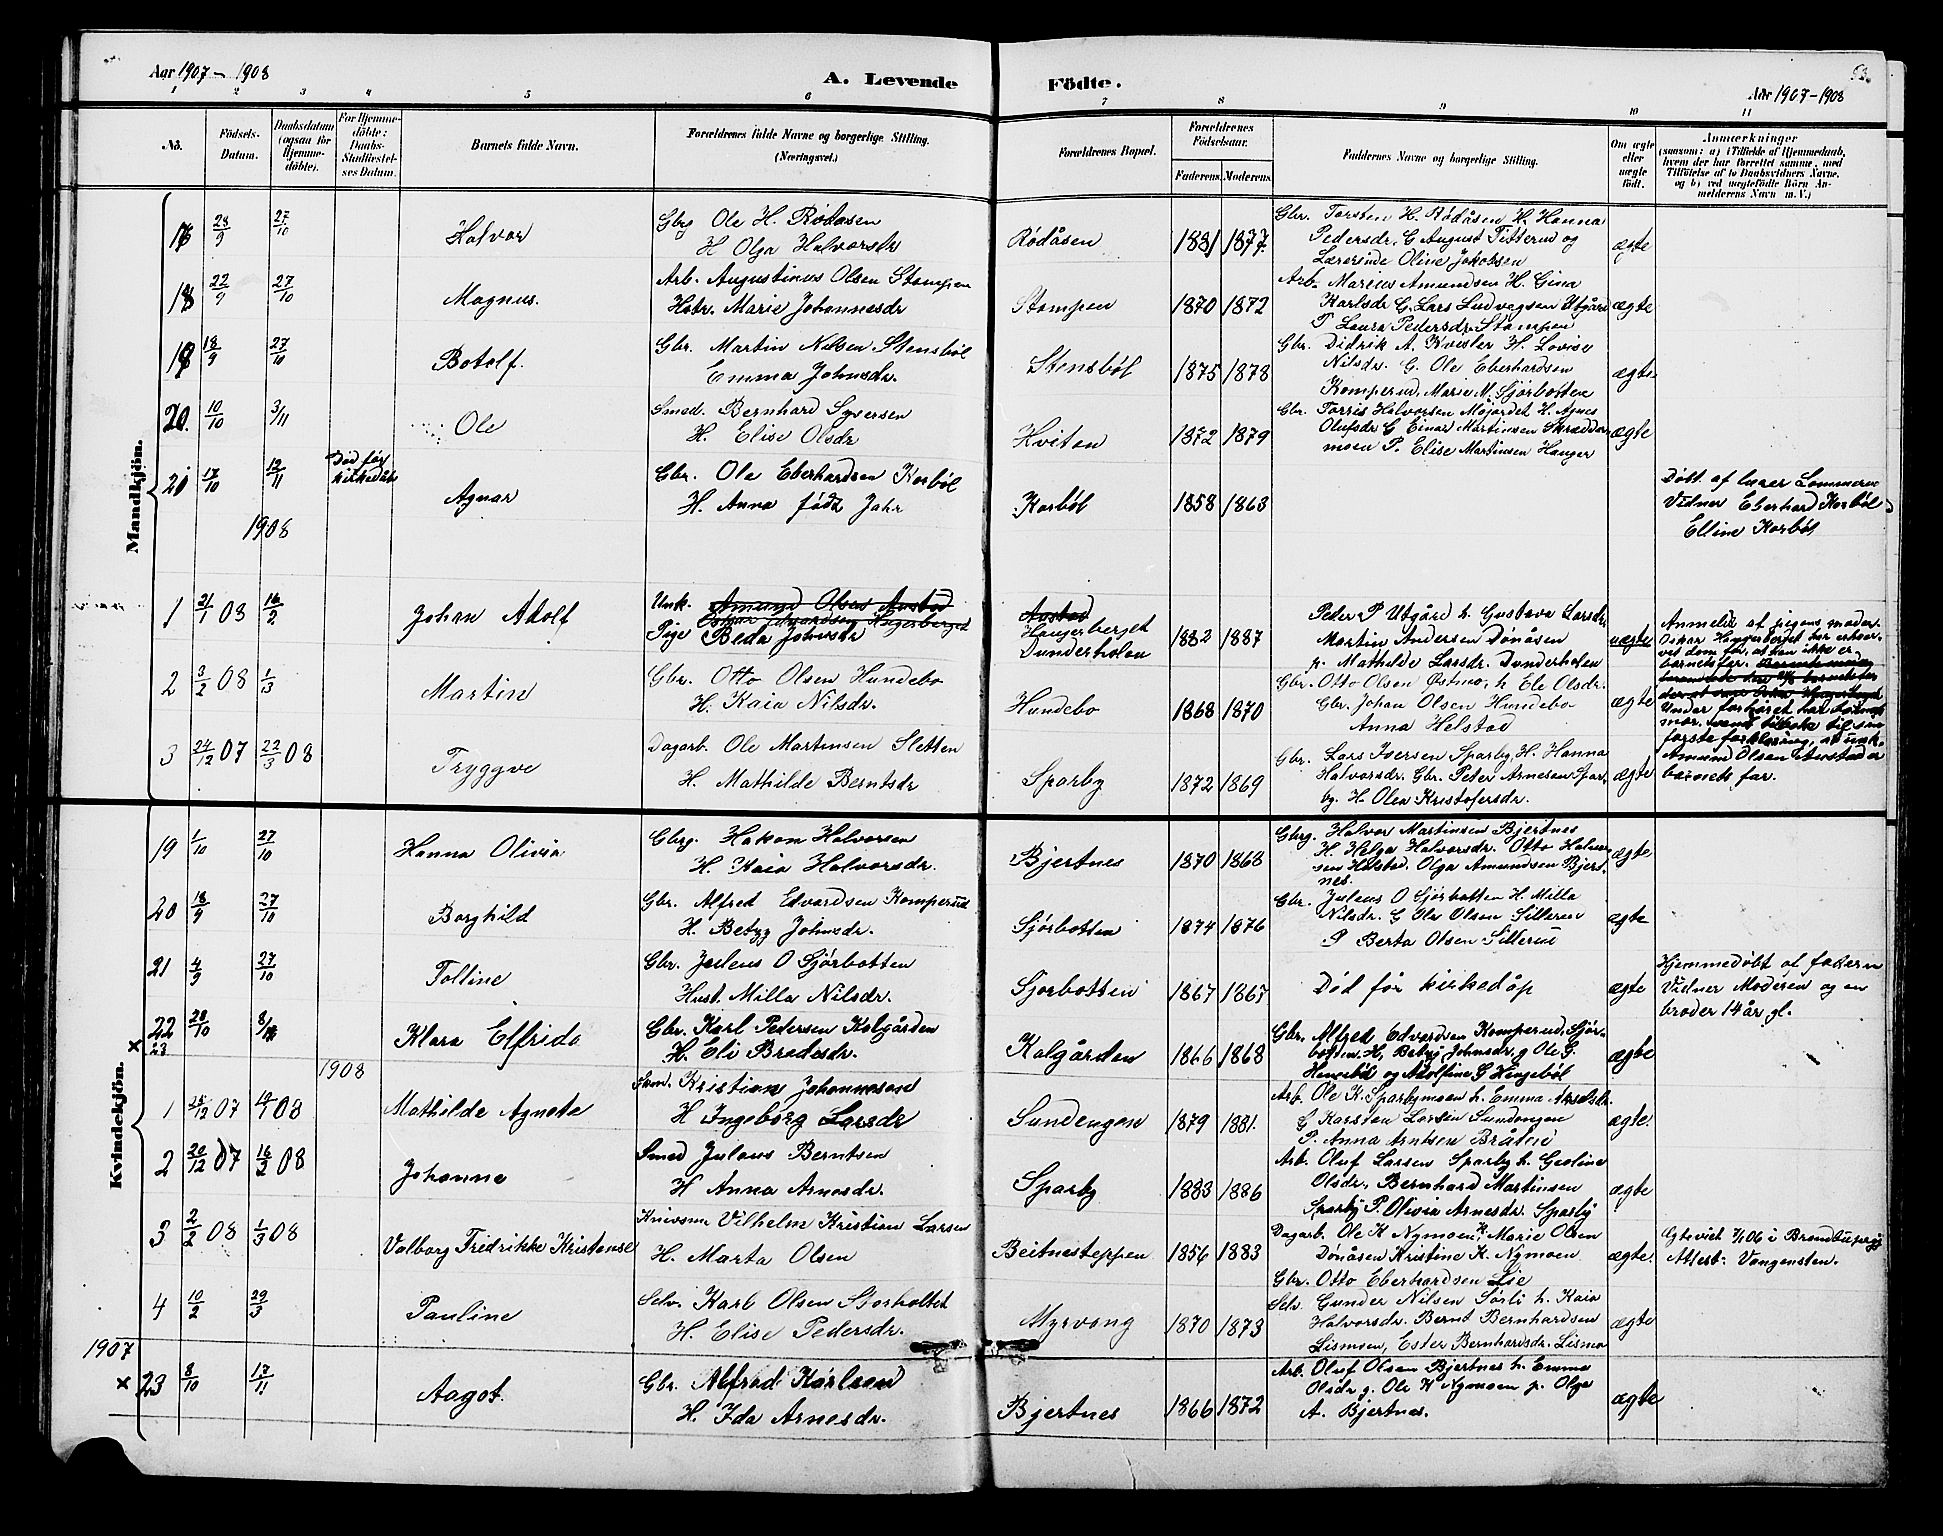 Aar 1907 - 1908
A. Levende Födte.
Aar 1907-1908
1 2 3 4 5 6 7 8 9 10 11
No.
Födsels-Datum.
Daabsdatum (ogsaa for Hjemmedöbte).
For Hjemmedöbte: Daabs-Stadfæstelses Datum.
Barnets fulde Navn.
Forældrenes fulde Navne og borgerlige Stilling. (Næringsvei.)
Forældrenes Bopæl.
Forældrenes Födselsaar.
Faderens. Moderens.
Faddernes Navne og borgerlige Stilling.
Om ægte eller uægte födt.
Anmærkninger
(saasom: a) i Tilfælde af Hjemmedaab, hvem der har forrettet samme, med Tilföielse af to Daabsvidners Navne, og b) ved uægtefödte Börn Anmelderens Navn m. V.)
Mandkjön.
23/9 27/10 Halvor
Gbrg Ole H. Rødåsen
H Olga Halvorsdr
Rødåsen 1881 1877
Gbr. Torsten H. Rødåsen H. Hanna
Pedersdr, G August Titterud og
Lærerinde Oline Jakobsen
ægte
18 22/9 27/10 Magnus.
Arb. Augustinus Olsen Stompen
Hstr. Marie Johannesdr
Stompen 1870 1872
Arb. Marius Amundsen H. Gina
Karlsdr G. Lars Ludvagsen Utgård
P Laura Pedersdr. Stompen
ægte
18/9 27/10 Botolf.
Gbr. Martin Nilsen Stensbøl
Emma Johnsdr.
Stensbøl 1875 1878
Gbr. Didrik A. Kvesler H. Lovise
Nilsdr. G. Ole Eberhardsen
Komperud, Marie M. Sjørbotten
ægte
20. 10/10 3/11 Ole
Smed. Bernhard Syversen
H. Elise Olsdr
Hviten 1872 1879
Gbr. Torris Halvorsen Mojordet H. Agnes
Olufsdr G Einar Martinsen Skrædder
moen P. Elise Martinsen Hanger
ægte
21 17/10 12/11 Død før kirkedåb Agnar
Gbr. Ole Eberhardsen Korbøl
H. Anna født Jahr
Korbøl 1858 1863
Døbt af lærer Lommerud
Vidner Eberhard Korbøl
Elline Korbøl
1908
1 21/1 08 16/2 Johan Adolf
Unk. Amund Olsen Austad
Oskar Edvardsen Hagerberget
Pige Beda Johnsdr
Austad
Haugerberget
Dunderholen 1882 1887
Peder P Utgård h. Gustava Larsdr
Martin Andersen Dønåsen
p. Mathilde Larsdr. Dunderholen
uægte
Anmeldt af pigens moder.
Oskar Haugerberget har erhver-
vet dom for, at han ikke er
barnets far.
Under forhøret har barnets
mor vendt tilbake til sin
første forklaring, at unk.
Amund Olsen Austad er
barnets far.
2 3/2 08 1/3 Martin
Gbr. Otto Olsen Hundebo
H. Kaia Nilsdr.
Hundebo 1868 1870
Gbr. Otto Olsen Østmo, h Ele Olsdr.
Gbr. Johan Olsen Hundebo
Anna Helstad
ægte
3 24/12 07 22/3 08 Tryggve
Dagarb. Ole Martinsen Sletten
H. Mathilde Berntsdr
Sparby 1872 1869
Gbr. Lars Iversen Sparby H. Hanna
Halvorsdr. Gbr. Peter Arnesen Spar-
by. H. Olea Kristofersdr.
ægte
Kvindekjön.
19 1/10 27/10 Hanna Olivia
Gbrg. Hakon Halvorsen
H. Kaia Halvorsdr.
Bjertnes 1870 1868
Gbrg. Halvor Martinsen Bjertnes
H. Helga Halvorsdr. Otto Halvor-
sen Helstad. Olga Amundsen Bjert-
nes.
ægte
20 18/9 27/10 Borghild
Gbr. Alfred Edvardsen Komperud
H. Betzy Johnsdr.
Sjørbotten 1874 1876
Gbr. Juleus O Sjørbotten H. Milla
Nilsdr. G Ole Olsen Sillerud
P Berta Olsen Sillerud
ægte
21 4/9 27/10 Tolline
Gbr. Juleus O Sjørbotten
Hust. Milla Nilsdr.
Sjorbotten 1867 1867
Død før kirkedåp
ægte
Hjemmedøbt af faderen
Vidner Moderen og en
broder 14 år gl.
x 22 23 20/10 Klara Elfrida
Gbr. Karl Pedersen Kolgården
H. Eli Bredesdr.
Kolgården 1866 1868
Gbr. Alfred Edvardsen Komperud, Sjør-
botten H. Betzy Johnsdr g Ole G.
Hengebøl og Adolfine G Hengebøl
ægte
1908
1 07 08 Mathilde Agneta
Kristian Johannesen
H Ingeborg Larsdr
Sundengen 1879 1881.
Arb. Ole K. Sparbymoen h. Emma Axelsdr.
G Karsten Larsen Sundengen
P. Anna Arntsen Bråten
ægte.
2 20/12 07 16/2 08 Johanne
Smed Julaus Berntsen
H Anna Arnesdr.
Sparby 1883 1886
Arb. Oluf Larsen Sparby h. Geoline
Olsdr, Bernhard Martinsen
Sparby P. Olivia Arnesdr. Sparby
ægte
3 2/2 08 1/3 08 Valborg Fredrikke Kristense
Vilhelm Kristian Larsen
H. Marta Olsen
Beitnesteppen 1856 1883
Dagarb. Ole K Nymoen, h Marie Olsen
Dønåsen Kristine K. Nymoen
Gbr. Otto Eberhardsen Lie
ægte.
Egteviet 7/1 06 i
Attest: Vangensten.
4 10/2 29/3 Pauline
Selv. Karl Olsen Storholtet
H. Elise Pedersdr.
Myrvang 1870 1873
Selv. Gunder Nilsen Sørli h. Kaia
Halvorsdr. Bernt Bernhardsen
Lismoen, Ester Bernhardsdr. Lismoen
ægte
1907
x 23 8/10 17/11 Aagot.
Gbr. Alfred Karlsen
H. Ida Arnesdr.
Bjertnes 1866 1872
Arb. Oluf Olsen Bjertnes h. Emma
Olsdr g. Ole K Nymoen p. Olga
A. Bjertnes.
ægte